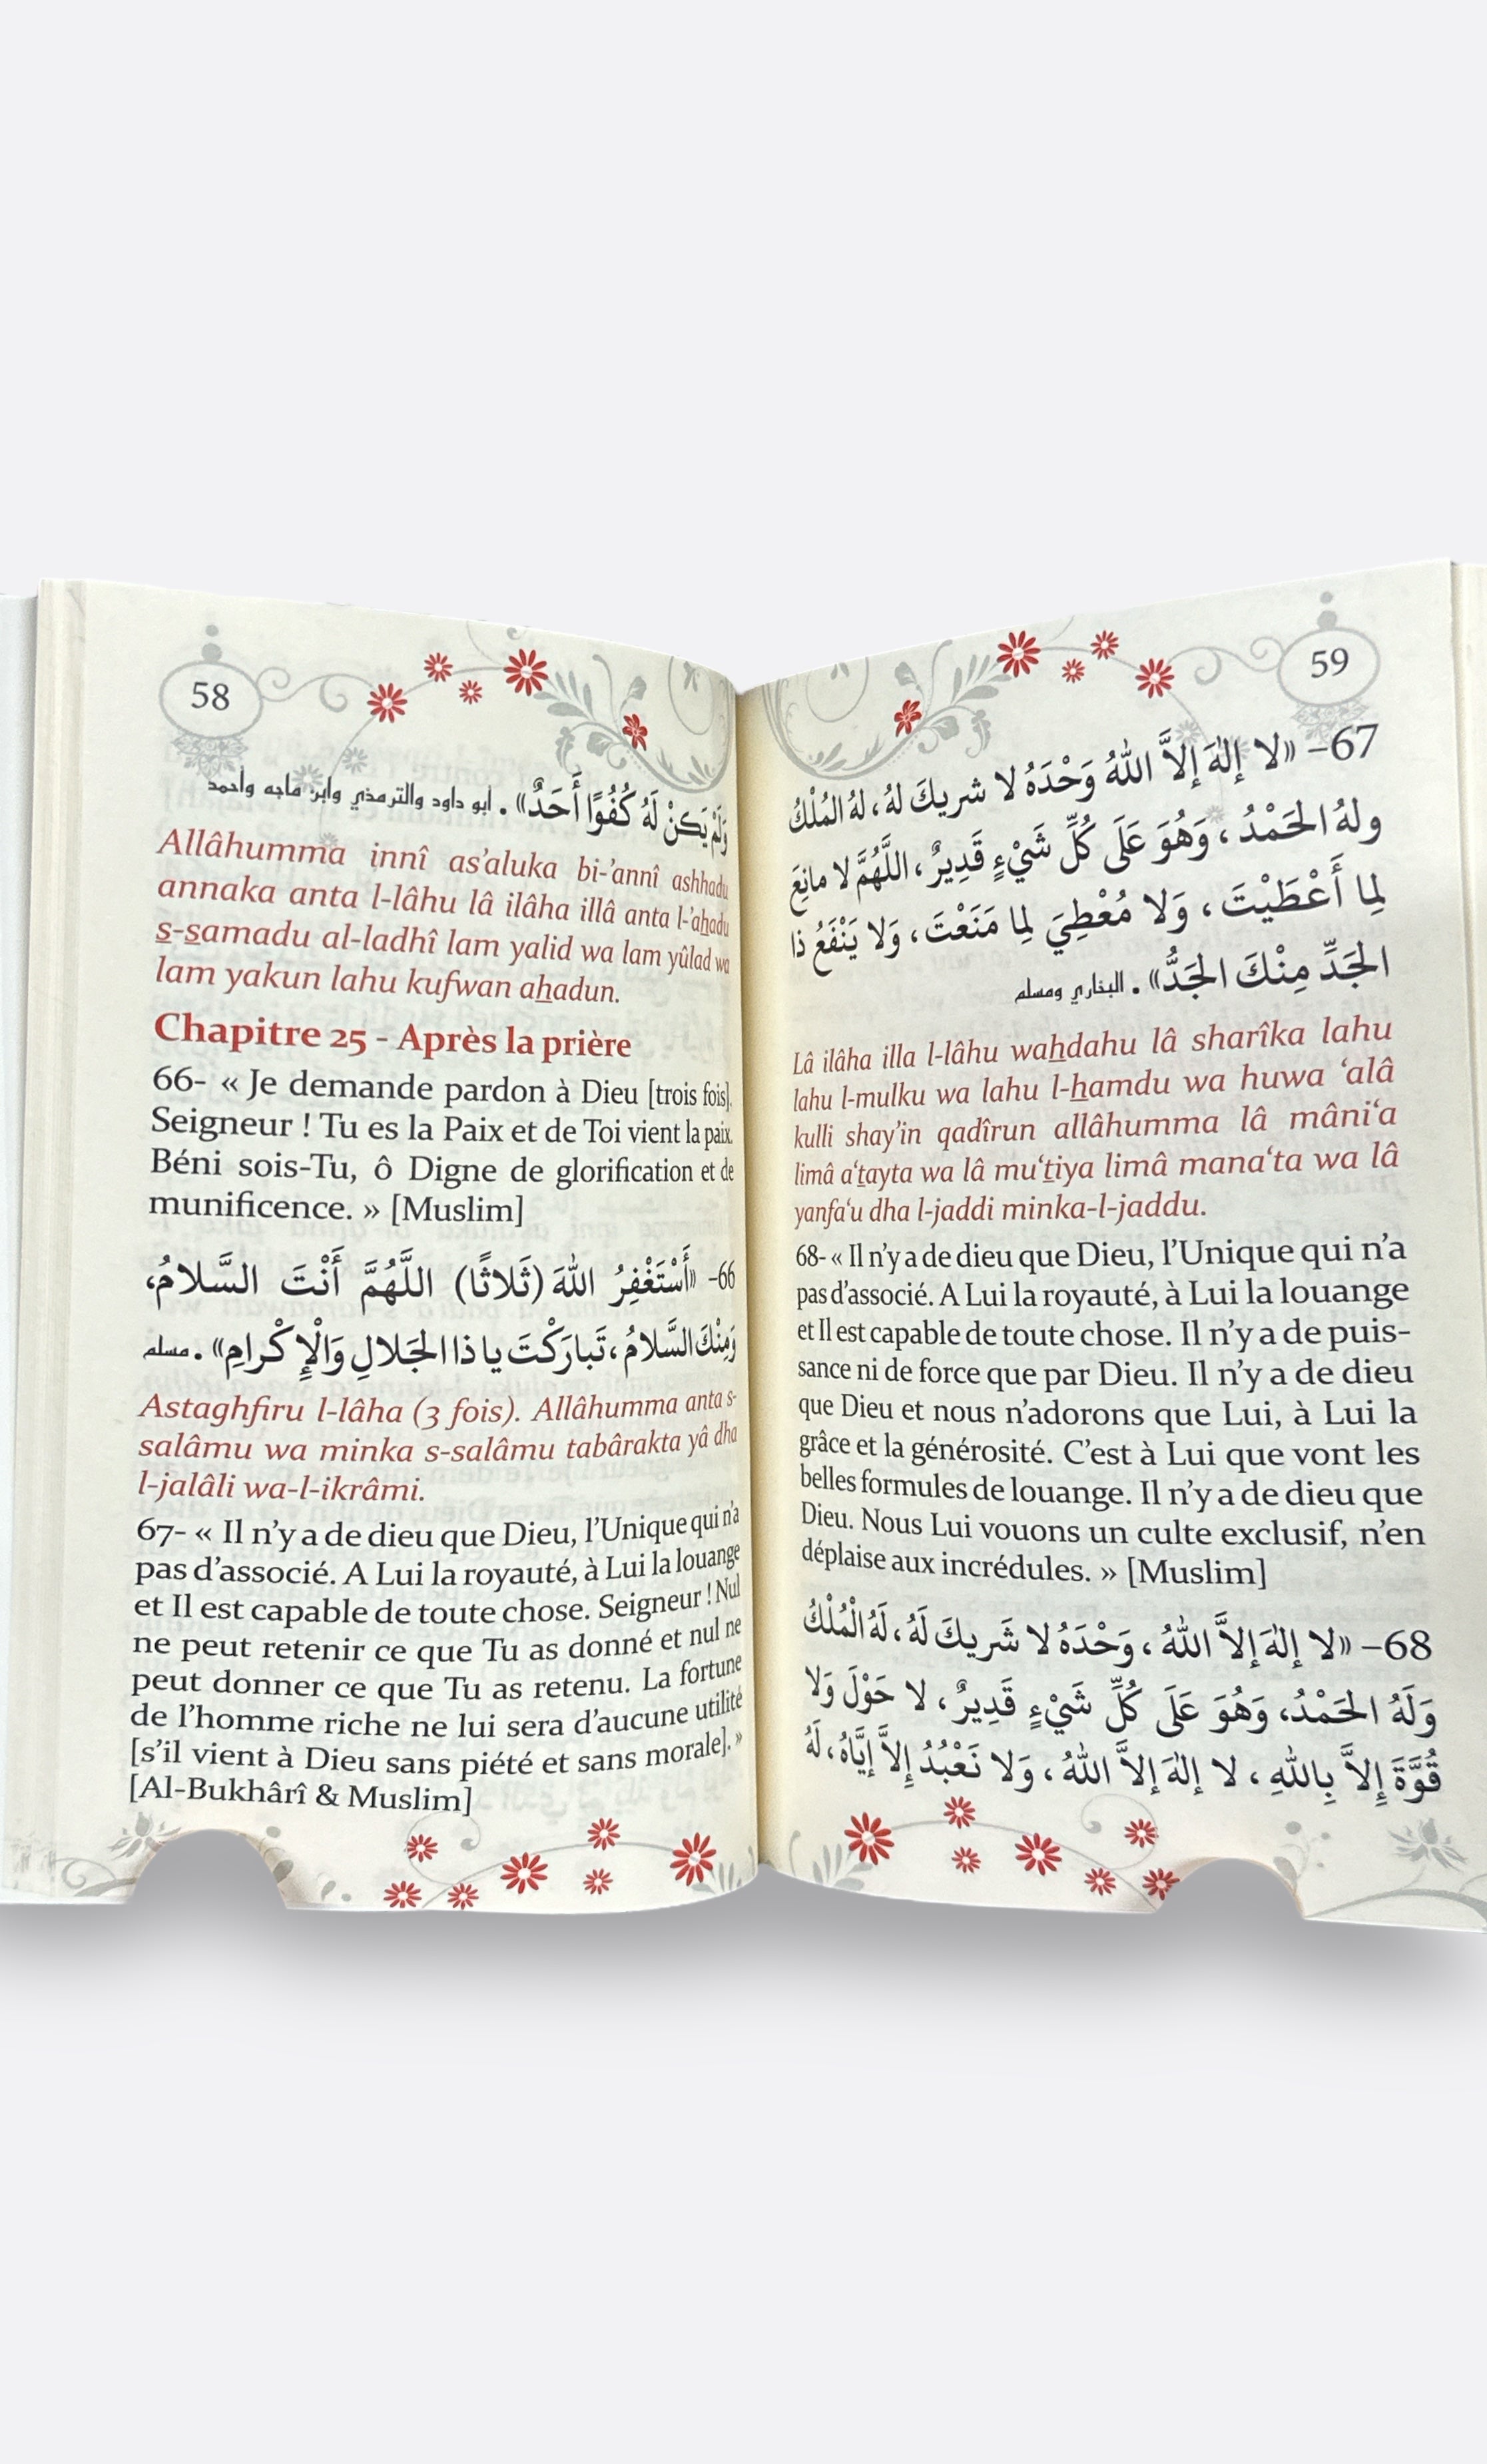 58
وَلَمْ يَكنْ لَهُ كُفُوًا أَحَدٌ». أبو داود والترمذي وابن ماجه وأحمد
Allâhumma innî as’aluka bi-’annî ashhadu
annaka anta l-lâhu lâ ilâha illâ anta l-’ahadu
s-samadu al-ladhî lam yalid wa lam yûlad wa
lam yakun lahu kufwan ahadun.
Chapitre 25 - Après la prière
66- « Je demande pardon à Dieu [trois fois].
Seigneur ! Tu es la Paix et de Toi vient la paix.
Béni sois-Tu, ô Digne de glorification et de
munificence. » [Muslim]
66- «أَسْتَغْفِرُ اللهَ (ثَلاثًا) اللَّهُمَّ أَنْتَ السَّلامُ،
وَمِنْكَ السَّلامُ، تَبارَكْتَ يا ذا الجَلالِ وَالْإِكْرامِ». مسلم
Astaghfiru l-lâha (3 fois). Allâhumma anta s-
salâmu wa minka s-salâmu tabârakta yâ dha
l-jalâli wa-l-ikrâmi.
67- « Il n’y a de dieu que Dieu, l’Unique qui n’a
pas d’associé. A Lui la royauté, à Lui la louange
et Il est capable de toute chose. Seigneur ! Nul
ne peut retenir ce que Tu as donné et nul ne
peut donner ce que Tu as retenu. La fortune
de l’homme riche ne lui sera d’aucune utilité
[s’il vient à Dieu sans piété et sans morale]. »
[Al-Bukhârî & Muslim]
59
67- «لا إلٰهَ إلاَّ اللهُ وَحْدَهُ لا شريكَ لهُ، لهُ المُلْكُ
ولهُ الحَمْدُ، وَهُوَ عَلَى كُلِّ شَيْءٍ قَدِيرٌ، اللَّهُمَّ لا مانِعَ
لِما أَعْطَيْتَ، وَلا مُعْطِيَ لِما مَنَعْتَ، وَلا يَنْفَعُ ذا
الجَدِّ مِنْكَ الجَدُّ». البخاري ومسلم
Lâ ilâha illa l-lâhu wahdahu lâ sharîka lahu
lahu l-mulku wa lahu l-hamdu wa huwa ‘alâ
kulli shay’in qadîrun allâhumma lâ mâni‘a
limâ a‘tayta wa lâ mu‘tiya limâ mana‘ta wa lâ
yanfa‘u dha l-jaddi minka-l-jaddu.
68- « Il n’y a de dieu que Dieu, l’Unique qui n’a
pas d’associé. A Lui la royauté, à Lui la louange
et Il est capable de toute chose. Il n’y a de puis-
sance ni de force que par Dieu. Il n’y a de dieu
que Dieu et nous n’adorons que Lui, à Lui la
grâce et la générosité. C’est à Lui que vont les
belles formules de louange. Il n’y a de dieu que
Dieu. Nous Lui vouons un culte exclusif, n’en
déplaise aux incrédules. » [Muslim]
68- «لا إلٰهَ إلاَّ اللهُ، وَحْدَهُ لا شَريكَ لَهُ، لَهُ الْمُلْكُ
وَلَهُ الحَمْدُ، وَهُوَ عَلَى كُلِّ شَيْءٍ قَدِيرٌ، لا حَوْلَ وَلا
قُوَّةَ إِلاَّ بِاللهِ، لا إلٰهَ إلاَّ اللهُ، وَلا نَعْبُدُ إِلاَّ إيَّاهُ، لَهُ